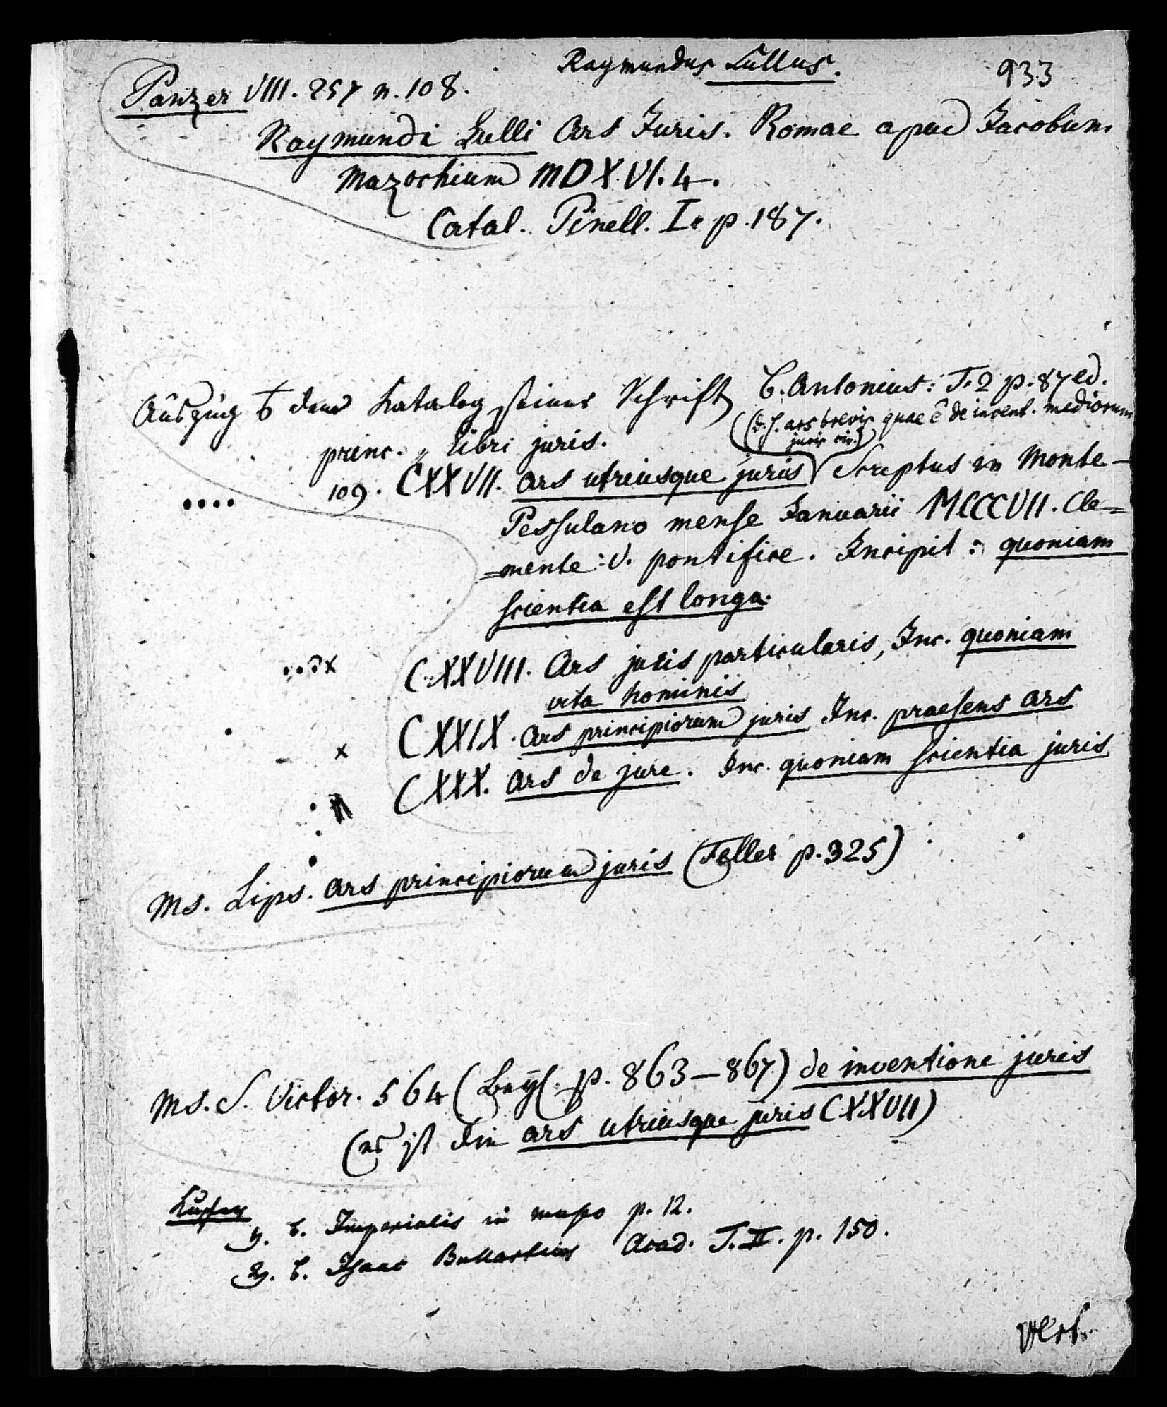 Raymundus Lullus.
933
Panzer VIII. 257 n. 108.
Raymundi Lulli Ars Juris. Romae apud Jacobum
Mazochium MDXVI. 4.
Catal. Pinell. I. p. 187.
Auszug dem Katalog seiner Schrift Antonius: T. 2 p. 87 ed.
(d. h. ars brevis quae ē de invent. mediorum
juris civ.)
princ. „ libri juris.
109. CXXVII. Ars utriusque juris Scriptus in Monte-
Pessulano mense Januarii MCCCVII. Cle=
=mente V. pontifice. Incipit: quoniam
scientia est longa.
CXXVIII. Ars juris particularis, Inc. quoniam
vita hominis
CXXIX. Ars principiorum juris Inc. praesens ars
CXXX. Ars de jure. Inc. quoniam scientia juris
Ms. Lips. ars principiorum juris (Feller p. 325)
Ms. S. Victor. 564 ( p. 863–867) de inventione juris
(es ist die ars utriusque juris CXXVII)
Kupfer
1. b. Imperialis in museo p. 12.
2. b. Isaac Bullartius Acad. T. II. p. 150.
vert.